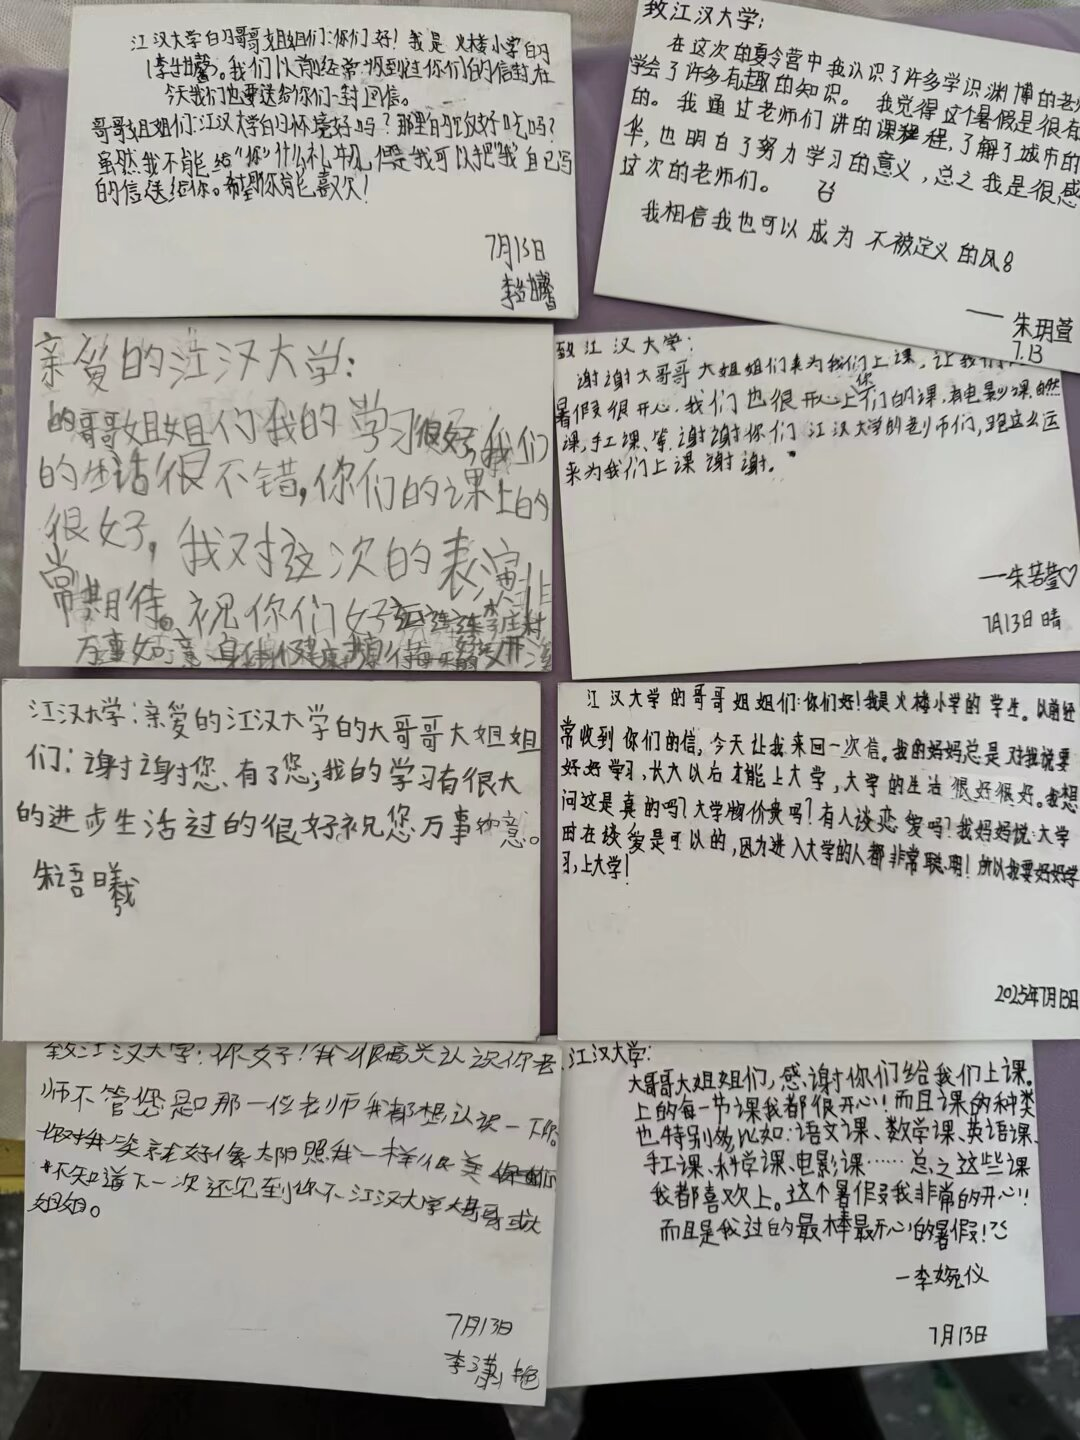 江汉大学的哥哥姐姐们:你们好!我是火楼小学的
李洁馨。我们以前经常收到过你们的信封,在
今天我们也要送给你们一封回信。
哥哥姐姐们:江汉大学的环境好吗?那里的饭好吃吗?
虽然我不能给“你”什么礼物,但是我可以把“我”自己写
的信送给你。希望你能喜欢!
7月13日
致江汉大学:
在这次的夏令营中我认识了许多学识渊博的老
学会了许多有趣的知识。我觉得这个暑假是很有
的。我通过老师们讲的课程,了解了城市的
华,也明白了努力学习的意义,总之我是很感
这次的老师们。
我相信我也可以成为不被定义的风
——朱玥萱
7.13
亲爱的江汉大学:
的哥哥姐姐们我的学习很好,我们
的生活很不错,你们的课上的
很好,我对这次的表演非
常期待。祝你们好
万事如意身体健康
致江汉大学:
谢谢大哥哥大姐姐们来为我们上课,让我们
暑假很开心,我们也很开心上你们的课,有电影课,自然
课,手工课,等,谢谢你们江汉大学的老师们,跑这么远
来为我们上课谢谢。
——朱若萱♡
7月13日晴
江汉大学:亲爱的江汉大学的大哥哥大姐姐
们:谢谢您,有了您;我的学习有很大
的进步生活过的很好祝您万事如意。
朱语曦
江汉大学的哥哥姐姐们:你们好!我是火楼小学的学生。以前经
常收到你们的信,今天让我来回一次信。我的妈妈总是对我说要
好好学习,长大以后才能上大学,大学的生活很好很好。我想
问这是真的吗?大学物价贵吗?有人谈恋爱吗?我妈妈说:大学
时在谈爱是可以的,因为进入大学的人都非常聪明!所以我要好好学
习,上大学!
2025年7月13日
致江汉大学:你好!我很高兴认识你老
师不管您是那一位老师我都想认识一下你。
你对我笑就好像太阳照我一样很美
不知道下一次还见到你不江汉大学大哥哥或大
姐姐。
7月13日
江汉大学:
大哥哥大姐姐们,感谢你们给我们上课。
上的每一节课我都很开心!而且课的种类
也特别多,比如:语文课、数学课、英语课、
手工课、科学课、电影课……总之这些课
我都喜欢上。这个暑假我非常的开心!!
而且是我过的最棒最开心的暑假!
—李婉仪
7月13日